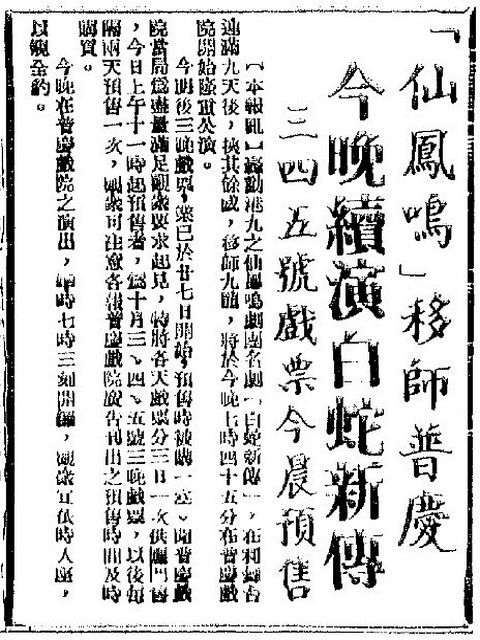 「仙鳳鳴」移師普慶
今晚續演白蛇新傳
三四五號戲票今晨預售
【本報訊】轟動港九之仙鳳鳴劇團名劇「白蛇新傳」，在利舞台
連滿九天後，挾其餘威，移師九龍，將於今晚七時四十五分在普慶戲
院開始隆重公演。
今明後三晚戲票，業已於廿七日開始預售時被購一空。聞普慶戲
院當局為盡量滿足觀衆要求起見，特將各天戲票分三日一次供應門售
，今日上午十一時起預售者，為十月三、四、五號三晚戲票，以後每
隔兩天預售一次，觀衆可注意各報普慶戲院廣告刊出之預售時間及時
購買。
今晚在普慶戲院之演出，時七時三刻開鑼，觀衆宜依時入座，
以窺全豹。